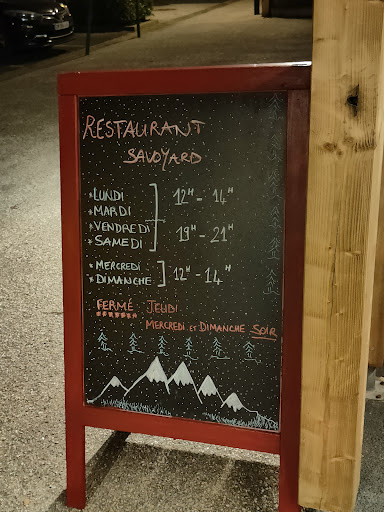 RESTAURANT
SAVOYARD
*LUNDI
*MARDI
*VENDREDI
*SAMEDI
12H - 14H
19H - 21H
*MERCREDI
*DIMANCHE
12H - 14H
FERMÉ JEUDI
MERCREDI ET DIMANCHE SOIR